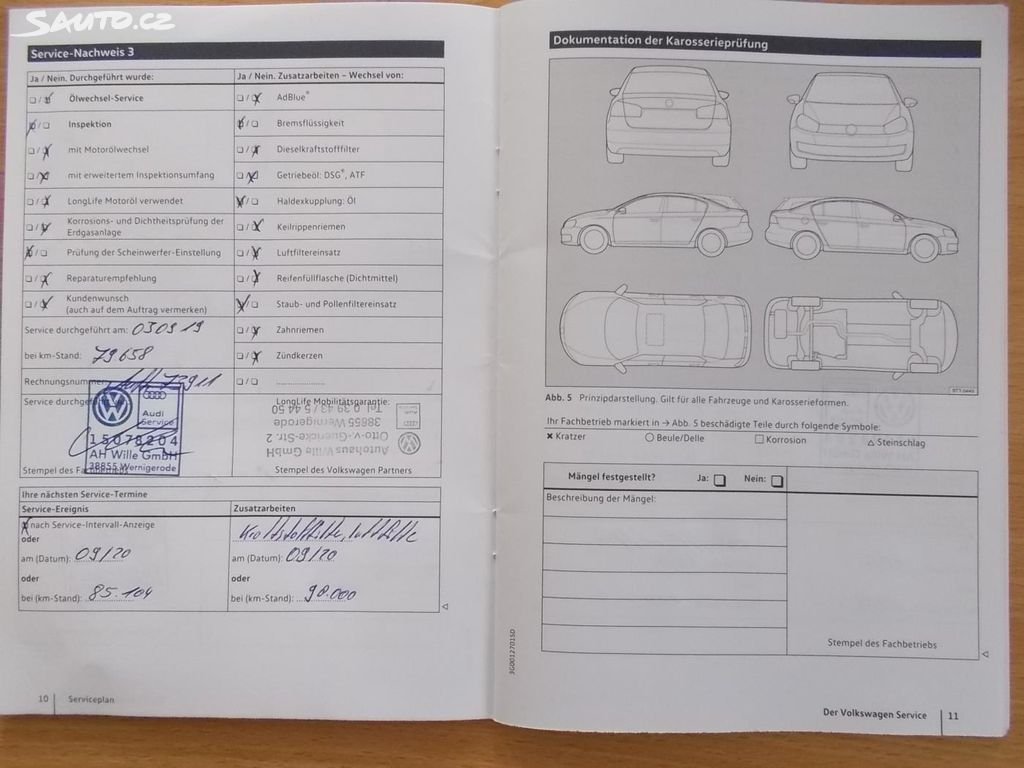 SAUTO.CZ
Service-Nachweis 3
Ja / Nein. Durchgeführt wurde:
Ölwechsel-Service
Inspektion
mit Motorölwechsel
mit erweitertem Inspektionsumfang
LongLife Motoröl verwendet
Korrosions- und Dichtheitsprüfung der
Erdgasanlage
Prüfung der Scheinwerfer-Einstellung
Reparaturempfehlung
Kundenwunsch
(auch auf dem Auftrag vermerken)
Service durchgeführt am: 030919
bei km-Stand: 79658
Rechnungsnummer
Service durchgef
Audi
Service
15078204
AH Wille GmbH
38855 Wernigerode
Stempel des Fachbetriebs
Ja / Nein. Zusatzarbeiten – Wechsel von:
AdBlue®
Bremsflüssigkeit
Dieselkraftstofffilter
Getriebeöl: DSG®, ATF
Haldexkupplung: Öl
Keilrippenriemen
Luftfiltereinsatz
Reifenfüllflasche (Dichtmittel)
Staub- und Pollenfiltereinsatz
Zahnriemen
Zündkerzen
LongLife Mobilitätsgarantie:
Autohaus Wille GmbH
Otto-v.-Guericke-Str. 2
38855 Wernigerode
Tel. 0 39 43 / 5 44 50
Stempel des Volkswagen Partners
Ihre nächsten Service-Termine
Service-Ereignis
nach Service-Intervall-Anzeige
oder
am (Datum): 09/20
oder
bei (km-Stand): 85.104
Zusatzarbeiten
Kraftstofffilter, Luftfilter
am (Datum): 09/20
oder
bei (km-Stand): 90.000
10 Serviceplan
Dokumentation der Karosserieprüfung
Abb. 5 Prinzipdarstellung. Gilt für alle Fahrzeuge und Karosserieformen.
Ihr Fachbetrieb markiert in → Abb. 5 beschädigte Teile durch folgende Symbole:
Kratzer Beule/Delle Korrosion Steinschlag
Mängel festgestellt? Ja: Nein:
Beschreibung der Mängel:
Stempel des Fachbetriebs
3G0012701SD
Der Volkswagen Service 11